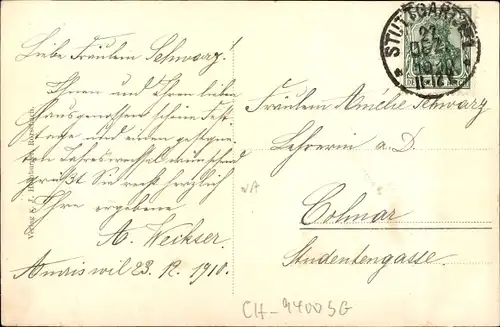 Liebe Fräulein Schwarz!
Ihnen und Ihren lieben
Hausgenossen schöne Fest-
tage und einen gesegne-
ten Jahreswechsel wünschend
grüßt Sie recht herzlich
Ihre ergebene
A. Weikser.
Amriswil 23. 12. 1910.
STUTTGART
21.
DEZ.
11-12V
Fräulein Amélie Schwarz
Lehrerin a. D.
Colmar
Studentengasse.
CH-9400 SG